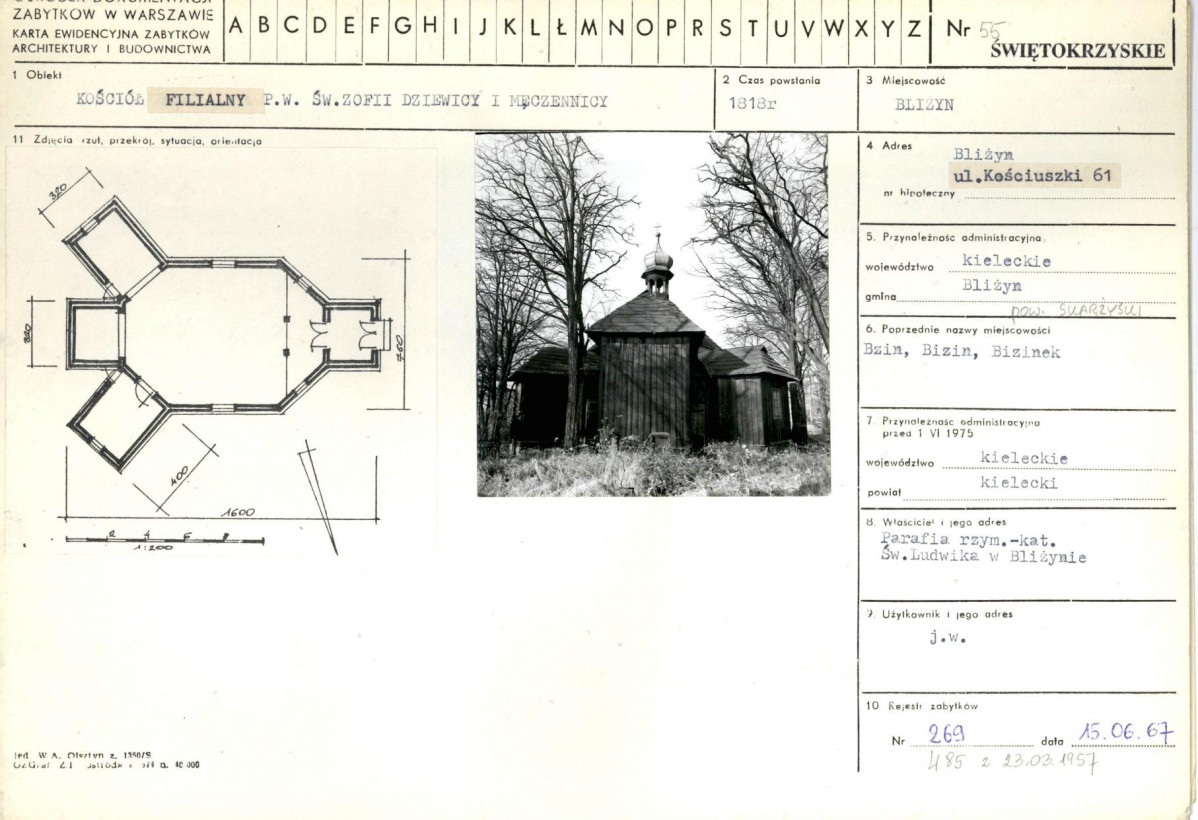 OŚRODEK DOKUMENTACJI
ZABYTKÓW W WARSZAWIE
KARTA EWIDENCYJNA ZABYTKÓW
ARCHITEKTURY I BUDOWNICTWA
A B C D E F G H I J K L Ł M N O P R S T U V W X Y Z
Nr 55
ŚWIĘTOKRZYSKIE
1 Obiekt
KOŚCIÓŁ FILIALNY P.W. ŚW.ZOFII DZIEWICY I MĘCZENNICY
2 Czas powstania
1818r
3 Miejscowość
BLIŻYN
11 Zdjęcia rzut, przekrój, sytuacja, orientacja
320
320
760
400
1600
2 4 6 8
1:200
4 Adres
Bliżyn
ul.Kościuszki 61
nr hipoteczny
5. Przynależność administracyjna
województwo kieleckie
gmina Bliżyn
pow. SKARŻYSKI
6. Poprzednie nazwy miejscowości
Bzin, Bizin, Bizinek
7. Przynależność administracyjna
przed 1 VI 1975
województwo kieleckie
powiat kielecki
8. Właściciel i jego adres
Parafia rzym.-kat.
Św.Ludwika w Bliżynie
9. Użytkownik i jego adres
j.w.
10 Rejestr zabytków
Nr 269 data 15.06.67
485 z 23.03.1957
W.A. Olsztyn z. 1350/S